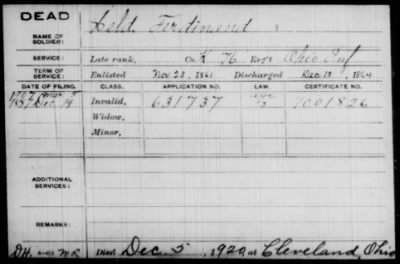 DEAD
NAME OF SOLDIER: Ferdinand
SERVICE: Late rank, Co. K 76 Reg't Ohio Inf
TERM OF SERVICE: Enlisted Nov. 23, 1861 Discharged Dec. 18, 1864
DATE OF FILING. CLASS. APPLICATION NO. LAW. CERTIFICATE NO.
Dec. 19 Invalid, 631737 1001826
Widow,
Minor,
ADDITIONAL SERVICES:
REMARKS:
Died Dec. 5, 1920, at Cleveland, Ohio